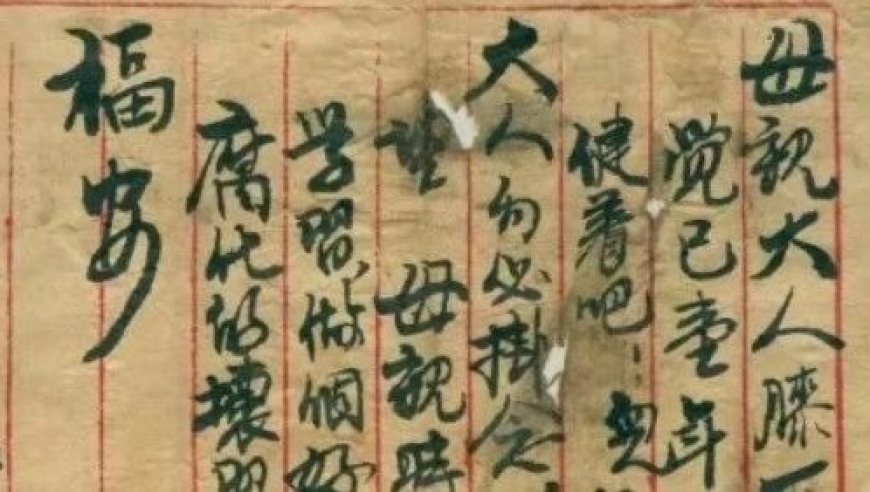 母親大人膝下
覺已壹年
健着吧
大人勿必掛念
望 母親時
學習做個好
腐化的壞習
福安